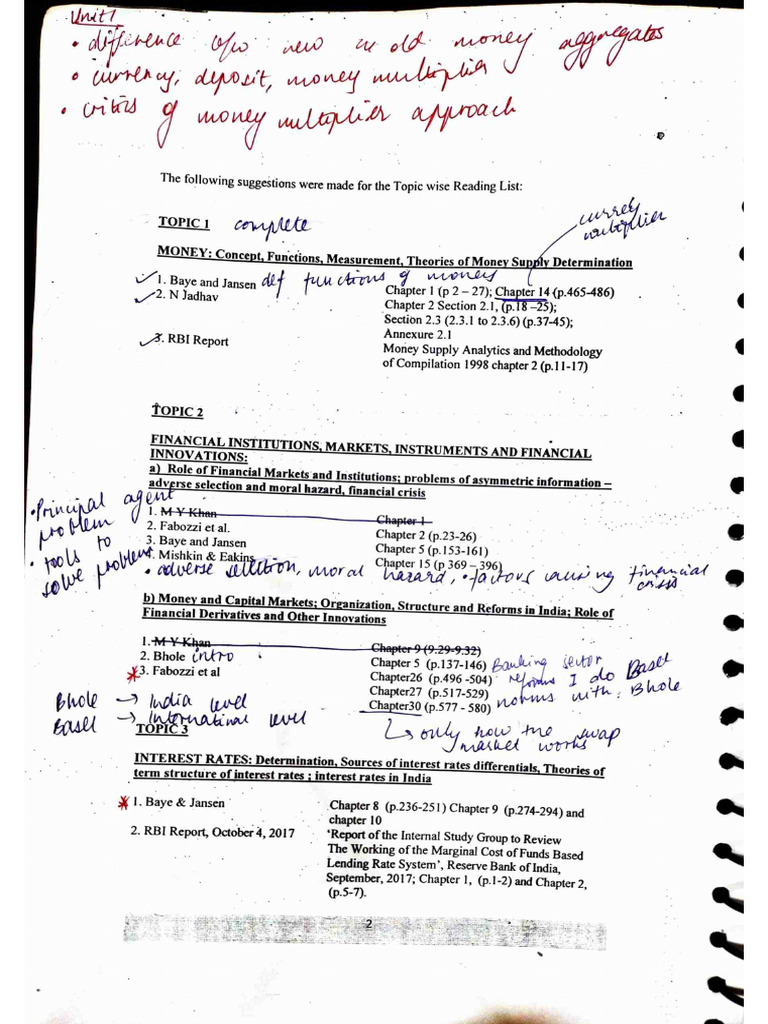 Unit 1
• difference b/w new & old money aggregates
• currency, deposit, money multiplier
• critics of money multiplier approach
The following suggestions were made for the Topic wise Reading List:
TOPIC 1 complete
currey multiplier
MONEY: Concept, Functions, Measurement, Theories of Money Supply Determination
1. Baye and Jansen def functions of money Chapter 1 (p 2 – 27); Chapter 14 (p.465-486)
2. N Jadhav Chapter 2 Section 2.1, (p.18 –25);
Section 2.3 (2.3.1 to 2.3.6) (p.37-45);
Annexure 2.1
3. RBI Report Money Supply Analytics and Methodology
of Compilation 1998 chapter 2 (p.11-17)
TOPIC 2
FINANCIAL INSTITUTIONS, MARKETS, INSTRUMENTS AND FINANCIAL
INNOVATIONS:
a) Role of Financial Markets and Institutions; problems of asymmetric information –
adverse selection and moral hazard, financial crisis
• Principal agent problem
• tools to solve problem
1. M Y Khan Chapter 1
2. Fabozzi et al. Chapter 2 (p.23-26)
3. Baye and Jansen Chapter 5 (p.153-161)
4. Mishkin & Eakins Chapter 15 (p 369 – 396)
• adverse selection, moral hazard, • factors causing financial crisis
b) Money and Capital Markets; Organization, Structure and Reforms in India; Role of
Financial Derivatives and Other Innovations
1. M Y Khan Chapter 9 (9.29-9.32)
2. Bhole intro Chapter 5 (p.137-146) Banking sector
3. Fabozzi et al Chapter26 (p.496 -504) reforms I do Basel
Chapter27 (p.517-529) norms with Bhole
Chapter30 (p.577 - 580)
Bhole → India level
Basel → International level
only how the swap
market works
TOPIC 3
INTEREST RATES: Determination, Sources of interest rates differentials, Theories of
term structure of interest rates ; interest rates in India
1. Baye & Jansen Chapter 8 (p.236-251) Chapter 9 (p.274-294) and
chapter 10
2. RBI Report, October 4, 2017 ‘Report of the Internal Study Group to Review
The Working of the Marginal Cost of Funds Based
Lending Rate System’, Reserve Bank of India,
September, 2017; Chapter 1, (p.1-2) and Chapter 2,
(p.5-7).
2